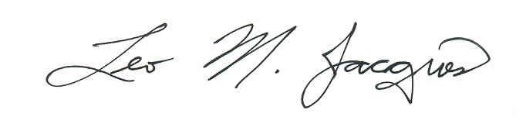 Leo M. Jacques